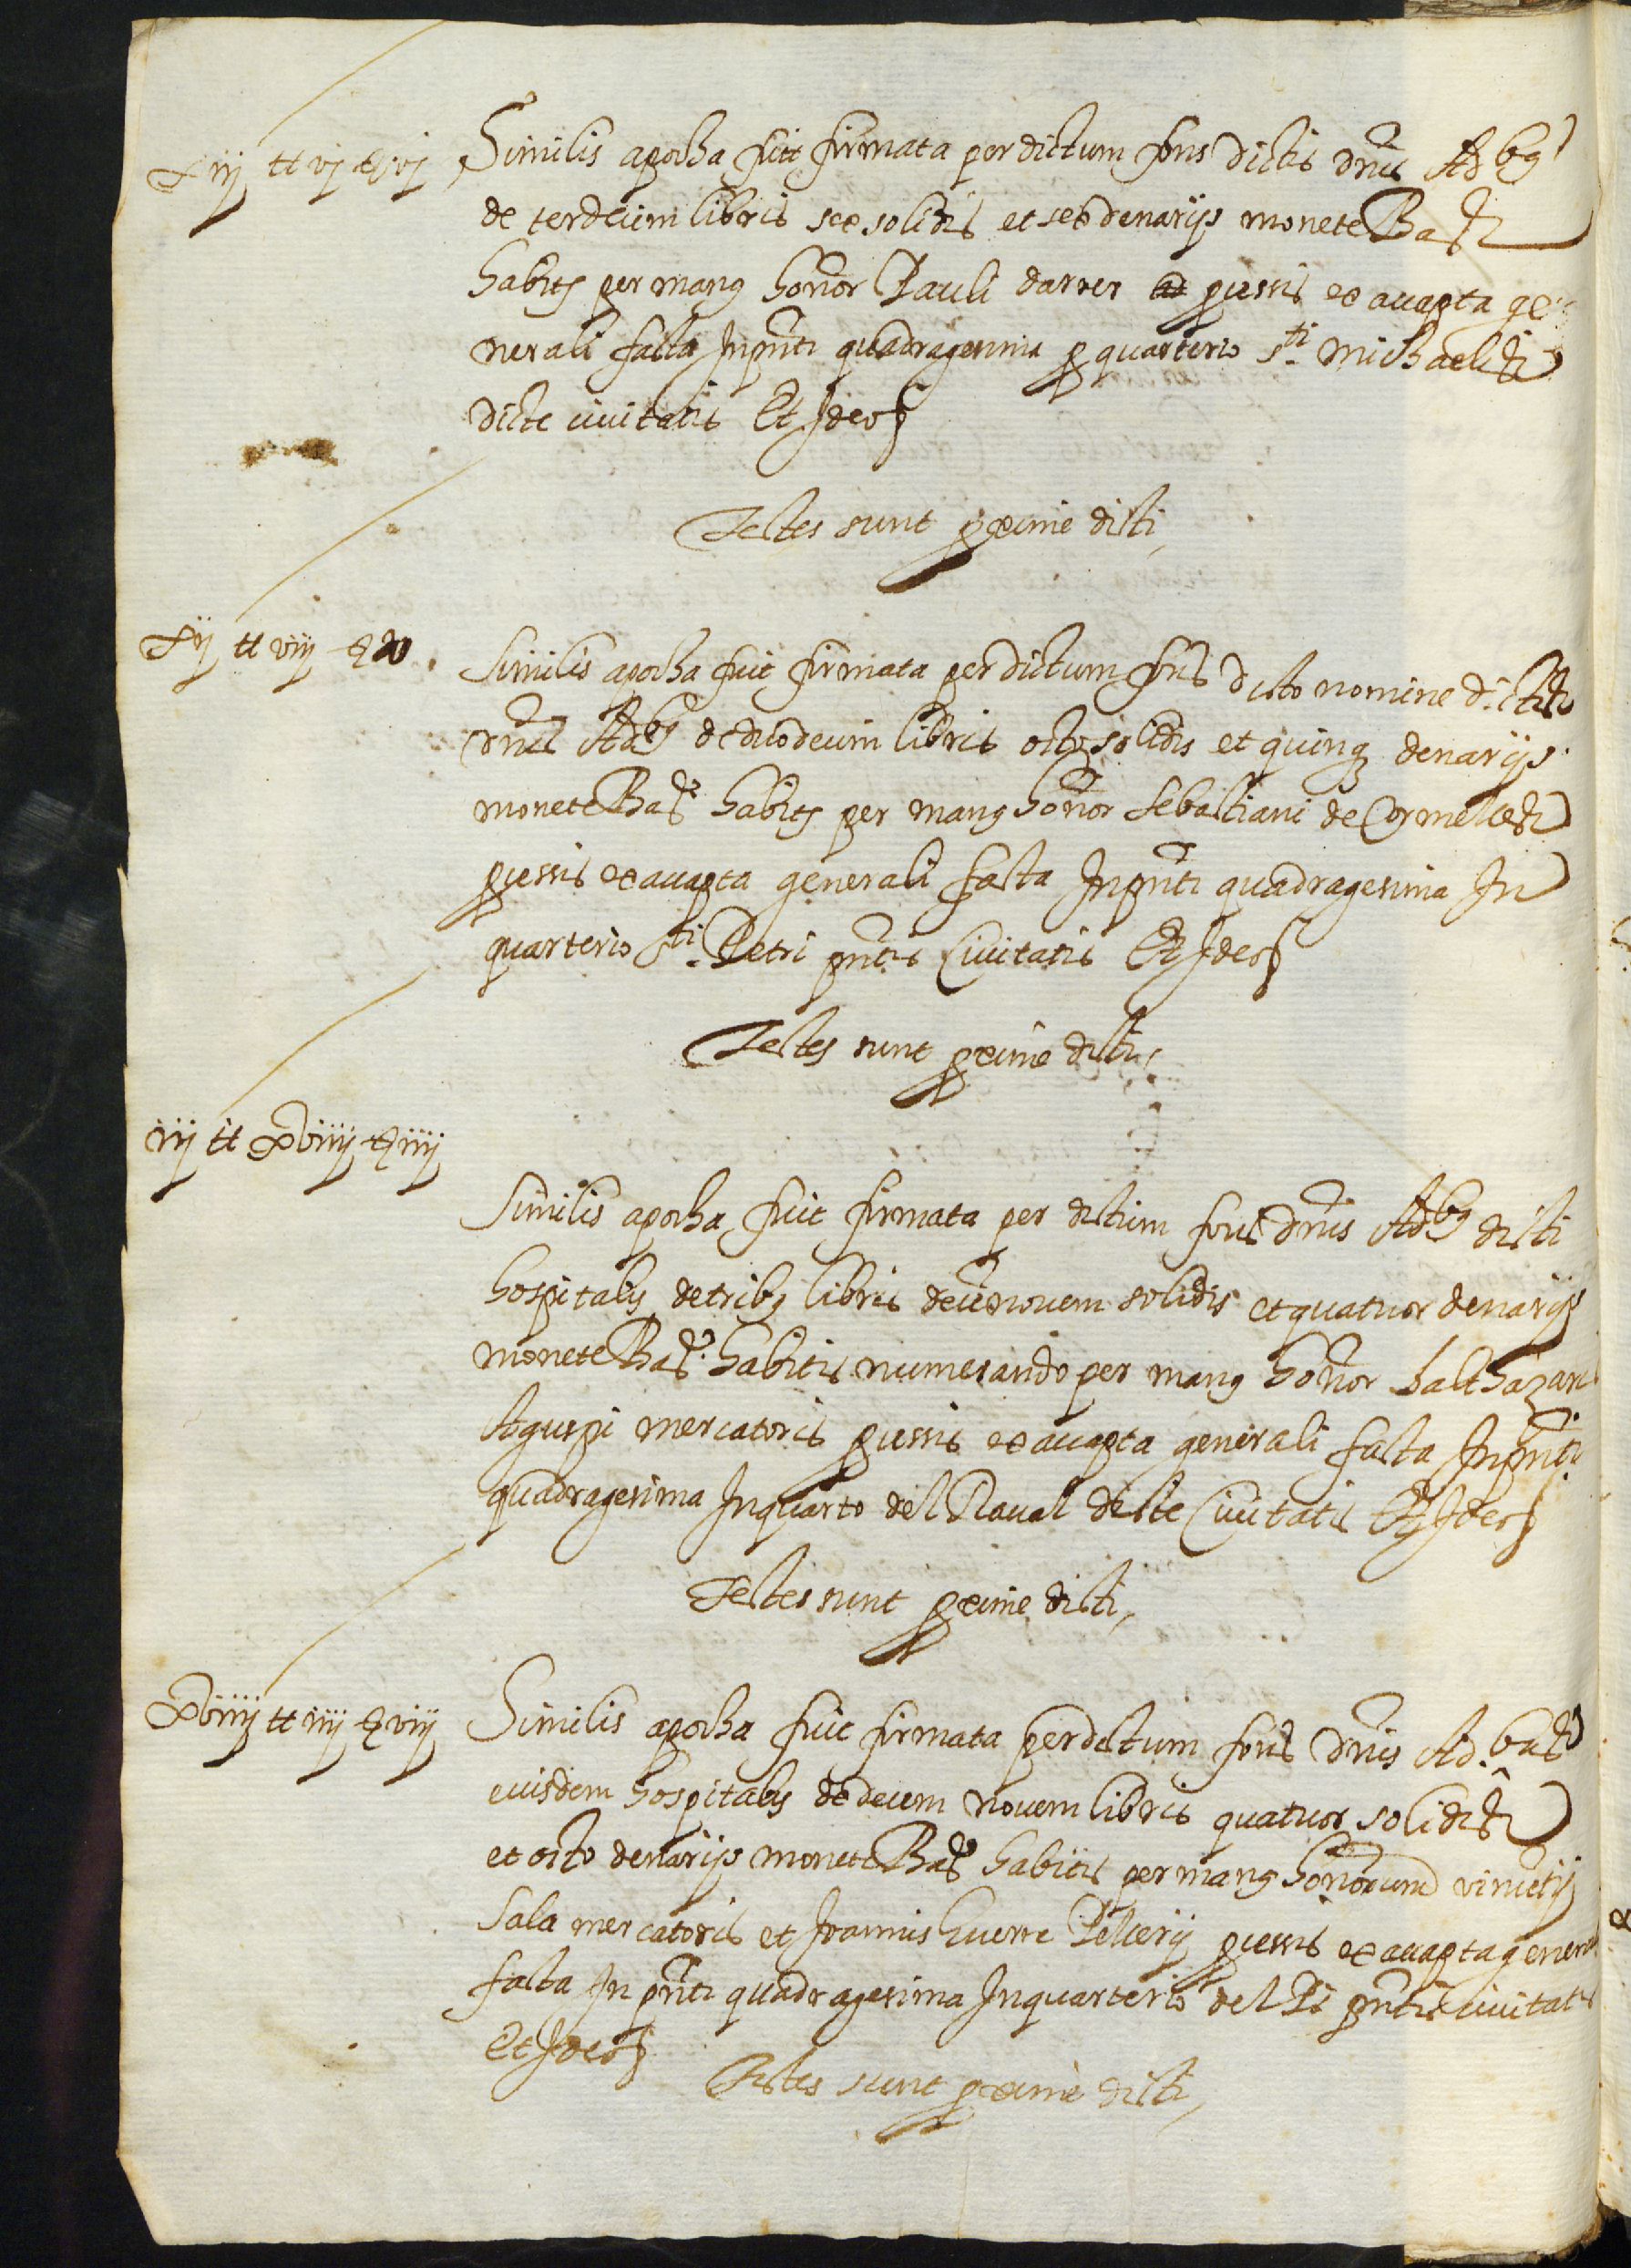 xiij tt vj ss vj
Similis apocha fuit firmata per dictum fris dictis dnis Adbq
de terdecim libris sex solidis et sex denarijs monete Bar
habitis per manq honor Pauli darrer ex accapta ge
nerali facta In pnti quadragesima p quarterio sti michaelis
dicte civitatis Et Ideo
Testes sunt proxime dicti
xij tt viij ss v
Similis apocha fuit firmata per dictum fris dicto nomine dictis
dnis Adbq de duodecim libris octo solidis et quinq denarijs
monete Bar habitis per manq honor Sebastiani de Cormelles
ex accapta generali facta In pnti quadragesima In
quarterio sti Petri pntis Civitatis Et Ideo
Testes sunt proxime dicti
iij tt xviiij ss iiij
Similis apocha fuit firmata per dictum fris dnis Adbq dicti
hospitalis de tribq libris decem novem solidis et quatuor denarijs
monete Bar habitis numerando per manq honor balthazaris
mercatoris ex accapta generali facta In pnti
quadragesima In quarto del Raval dicte Civitatis Et Ideo
Testes sunt proxime dicti
xviiij tt iiij ss viij
Similis apocha fuit firmata per dictum fris dnis Ad.bus
eiusdem hospitalis de decem novem libris quatuor solidis
et octo denarijs monete Bar habitis per manq honorum vincetij
Sala mercatoris et Joannis Guerre ex accapta general
facta In pnti quadragesima In quarterio del Pi pntis civitatis
Et Ideo
Testes sunt proxime dicti